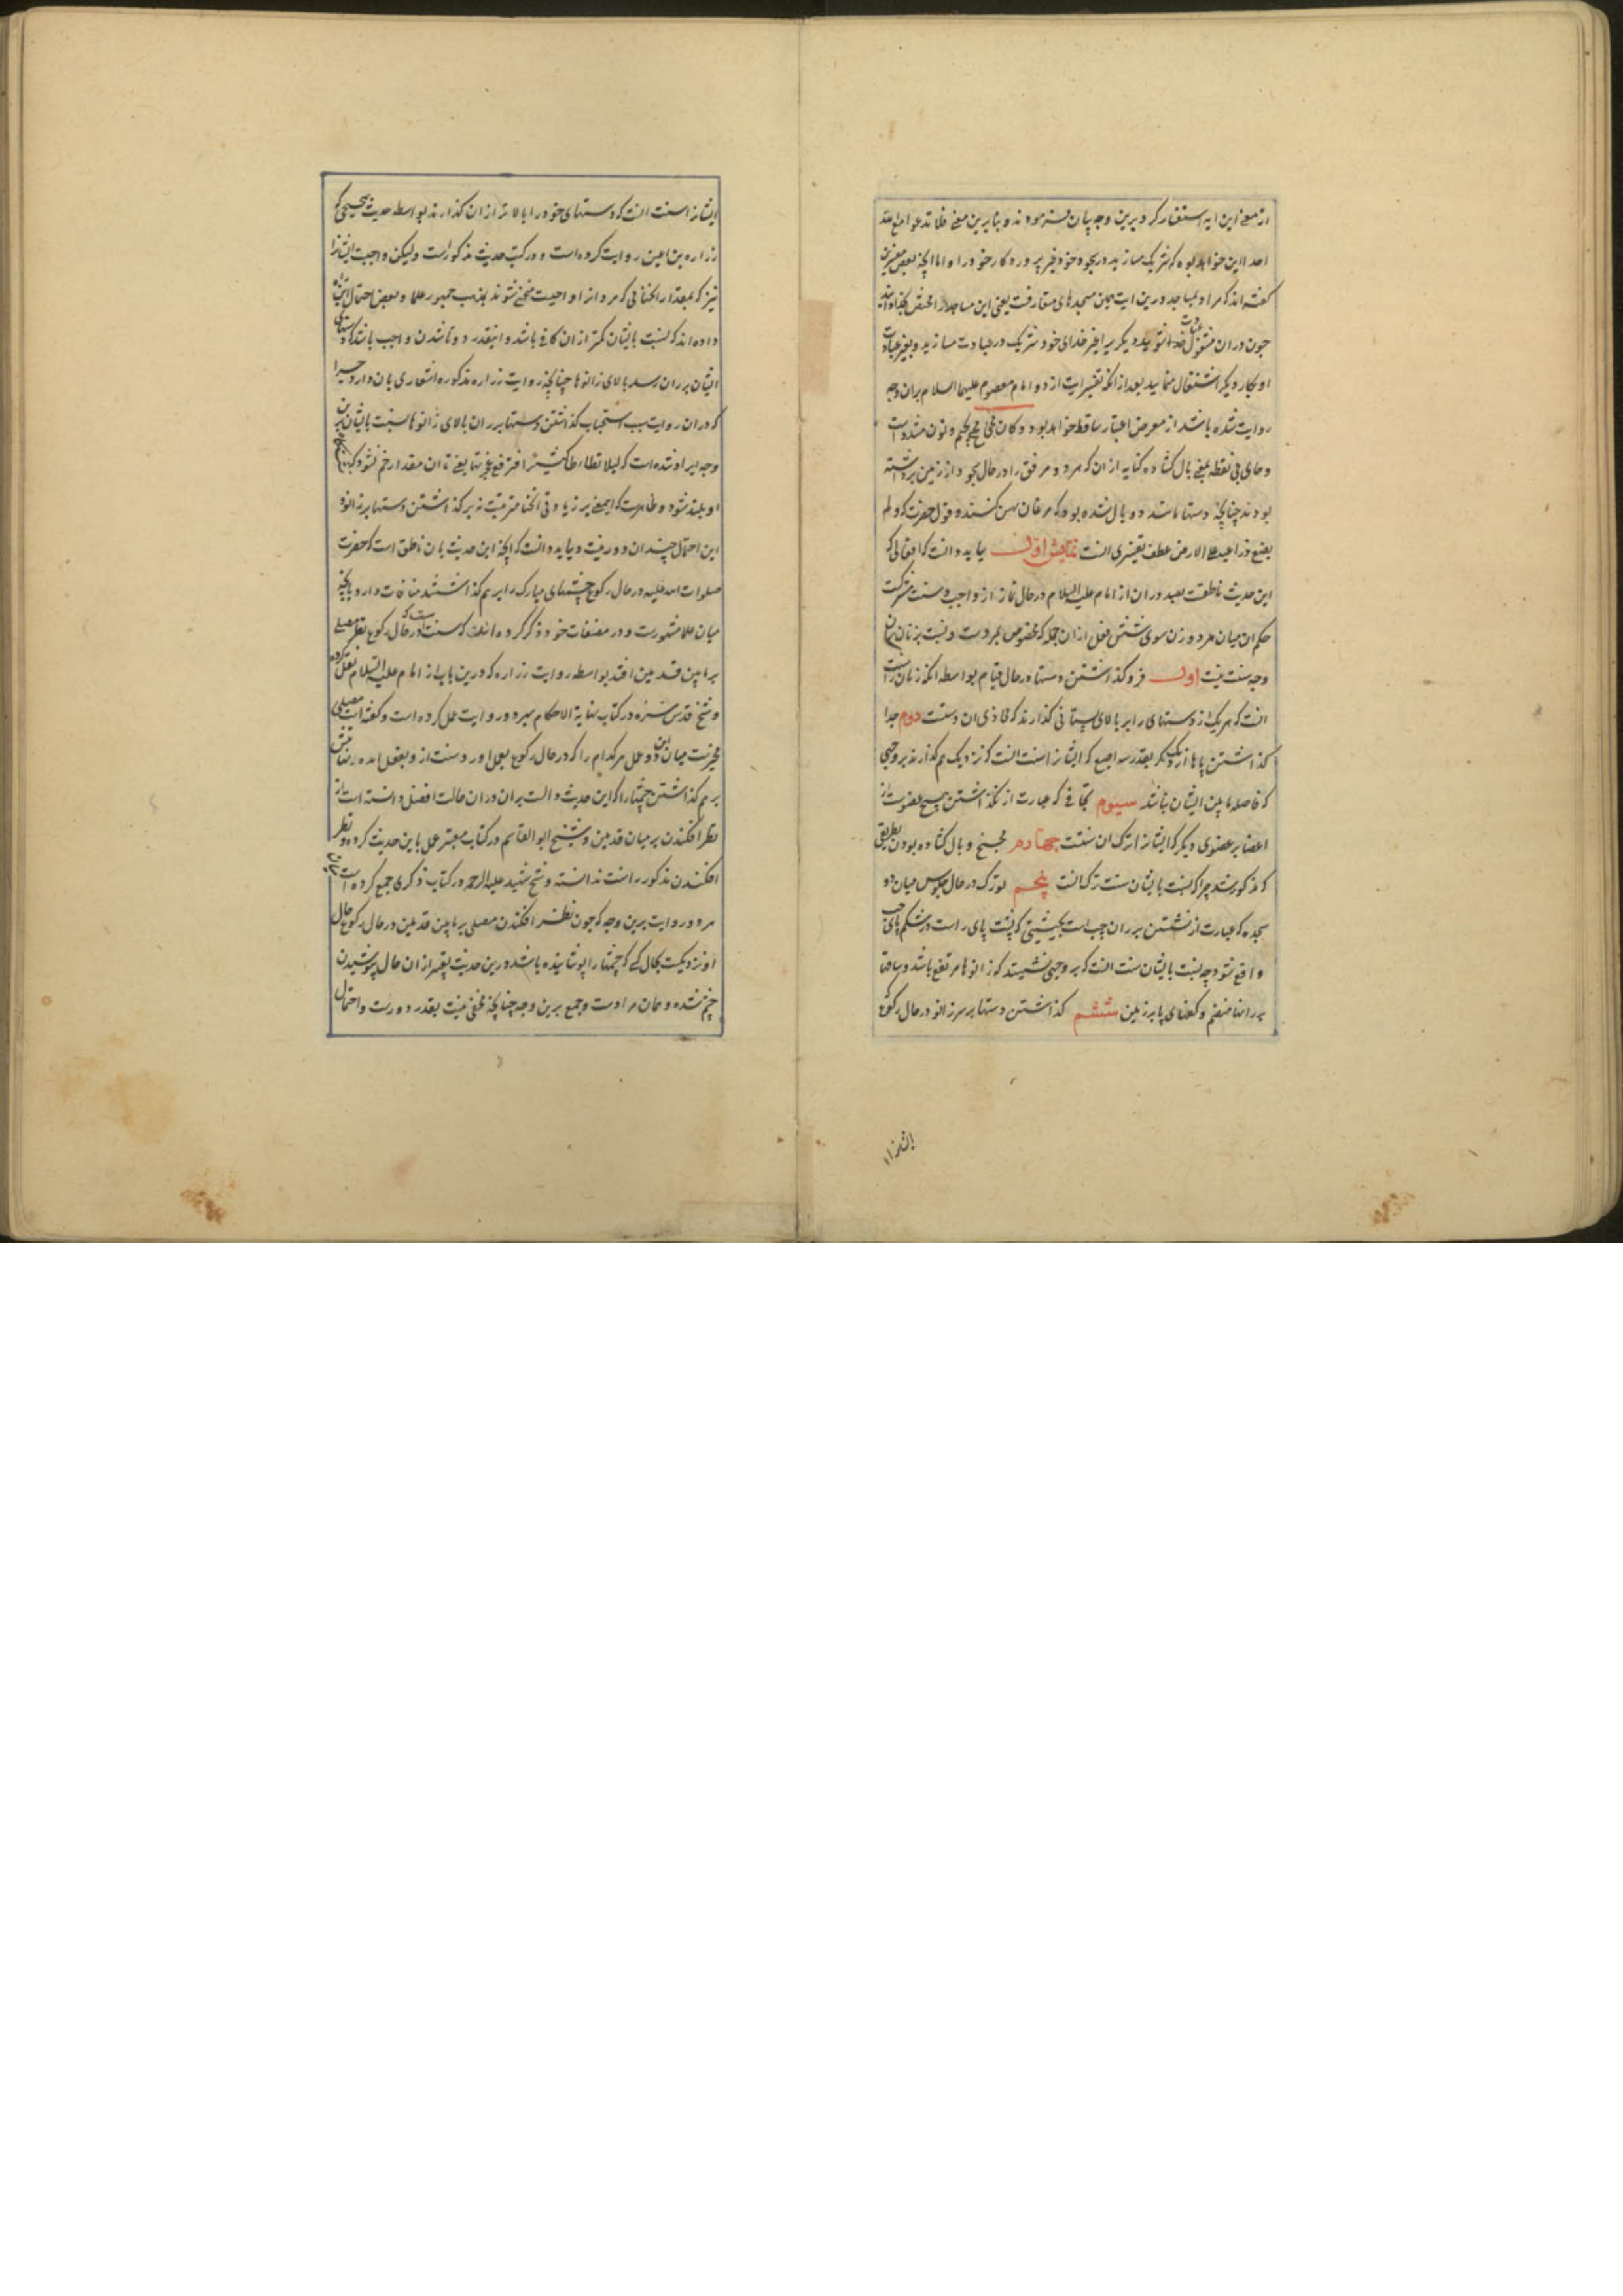 از معنی این ایه استفسار کرد برین وجه بیان فرمودند و بنابرین معنی فلا تدعوا مع الله
احدا این خواهد بود که شریک مسازید در سجود خود غیر پروردکار خود را و اما انچه بعض مفسرین
کفته اند که مراد بمساجد درین ایت همین مسجدهای متعارفست یعنی این مساجد را مختص بخدا دانید
چون در ان مشغول عبادت خدا شوید دیکر برا غیر خدای خود شریک در عبادت مسازید و بغیر عبادت
او بکار دیکر اشتغال منمایید بعد از انکه تفسیر ایت از دو امام معصوم علیهما السلام بران وجه
روایت شده باشد از معرض اعتبار ساقط خواهد بود و کان مجنح بجیم و نون مشدد است
و حای بی نقطه بمعنی بال کشاده کنایه از ان که مرد و مرفق را در حال سجود از زمین برداشته
بودند چنانچه دستها مانند دو بال شده بود که مرغان پهن کنند و قول حضرت که ولم
یضع ذراعیه علی الارض عطف تفسیری انست نمایش اول بباید دانست که افعالی که
این حدیث ناطقست بصدور ان از امام علیه السلام در حال نماز از واجب و سنت مشترکست
حکم ان میان مرد و زن سوی شش فعل از ان جمله که مخصوص بمردست و نسبت بزنان بران
وجه سنت نیست اول فرو کذاشتن دستها در حال قیام بواسطه انکه زنان را سنت
انست که هر یک از دستهای را بر بالای پستانی کذارند که محاذی ان دستست دوم جدا
کذاشتن پاها از یکدیکر بقدر سه اصبع که ایشانرا سنت انست که نزدیک هم کذارند بر وجهی
که فاصله مابین ایشان نباشد سیوم تجافی که عبارت از نکذاشتن هیچ عضویست از
اعضا بر عضوی دیکر که ایشانرا ترک ان سنتست چهارم مجنح و بال کشاده بودن بطریقی
که مذکور شد چرا که نسبت بایشان سنت ترک انست پنجم تورک در حال جلوس میان دو
سجده که عبارت از نشستن بر ران چپ است بحیثیتی که پشت پای راست در شکم پای چپ
واقع شود چه نسبت بایشان سنت انست که بر وجهی نشینند که زانوها مرتفع باشد و ساقها
بر رانها منضم و کفهای پا بر زمین ششم کذاشتن دستها بر سر زانو در حال رکوع
ایشانرا
ایشانرا سنت انست که دستهای خود را بالاتر از ان کذارند بواسطه حدیث صحیحی که
زراره بن اعین روایت کرده است و در کتب حدیث مذکور است ولیکن واجبست ایشانرا
نیز که بمقدار انحنائی که مردانرا واجبست منحنی شوند بمذهب جمهور علما و بعضی احتمال این
داده اند که نسبت بایشان کمتر از ان کافی باشد و انقدر دوتا شدن واجب باشد که دستهای
ایشان بر ران رسد بالای زانوها چنانچه روایت زراره مذکوره اشعاری بان دارد چرا
که در ان روایت سبب استحباب کذاشتن دستها بر ران بالای زانوها نسبت بایشان برین
وجه ایراد شده است که لئلا تطاطا کثیرا فترفع عجیزتها یعنی تا ان مقدار خم نشود که
او بلند شود و ظاهرست که اینمعنی بر زیادتی انحنا مترتبست نه بر کذاشتن دستها بر زانو و
این احتمال چندان دور نیست و بباید دانست که انچه این حدیث بان ناطق است که حضرت
صلوات الله علیه در حال رکوع چشمهای مبارک را بر هم کذاشتند منافات دارد با انچه
میان علما مشهورست و در مصنفات خود ذکر کرده اند که سنت است که در حال رکوع نظر مصلی
بر مابین قدمین افتد بواسطه روایت زراره که درین باب از امام علیه السلام نقل کرده
و شیخ قدس سره در کتاب نهایة الاحکام بهر دو روایت عمل کرده است و کفته است مصلی
مخیرست میان این دو عمل هر کدام را که در حال رکوع بعمل اورد سنت از و بفعل امده
بر هم کذاشتن چشمها را که این حدیث دالست بران در ان حالت افضل دانسته است از
نظر افکندن بر میان قدمین و شیخ ابو القاسم در کتاب معتبر عمل باین حدیث کرده و نظر
افکندن مذکور را سنت ندانسته و شیخ شهید علیه الرحمه در کتاب ذکری جمع کرده است میان
هر دو روایت برین وجه که چون نظر افکندن مصلی بر مابین قدمین در حال رکوع حال
او نزدیکست بحال کسی که چشمها را پوشانیده باشد درین حدیث تعبیر از ان حال بپوشیدن
چشم شده و همان مرادست و جمع برین وجه چنانچه مخفی نیست بقدر دورست و احتمال